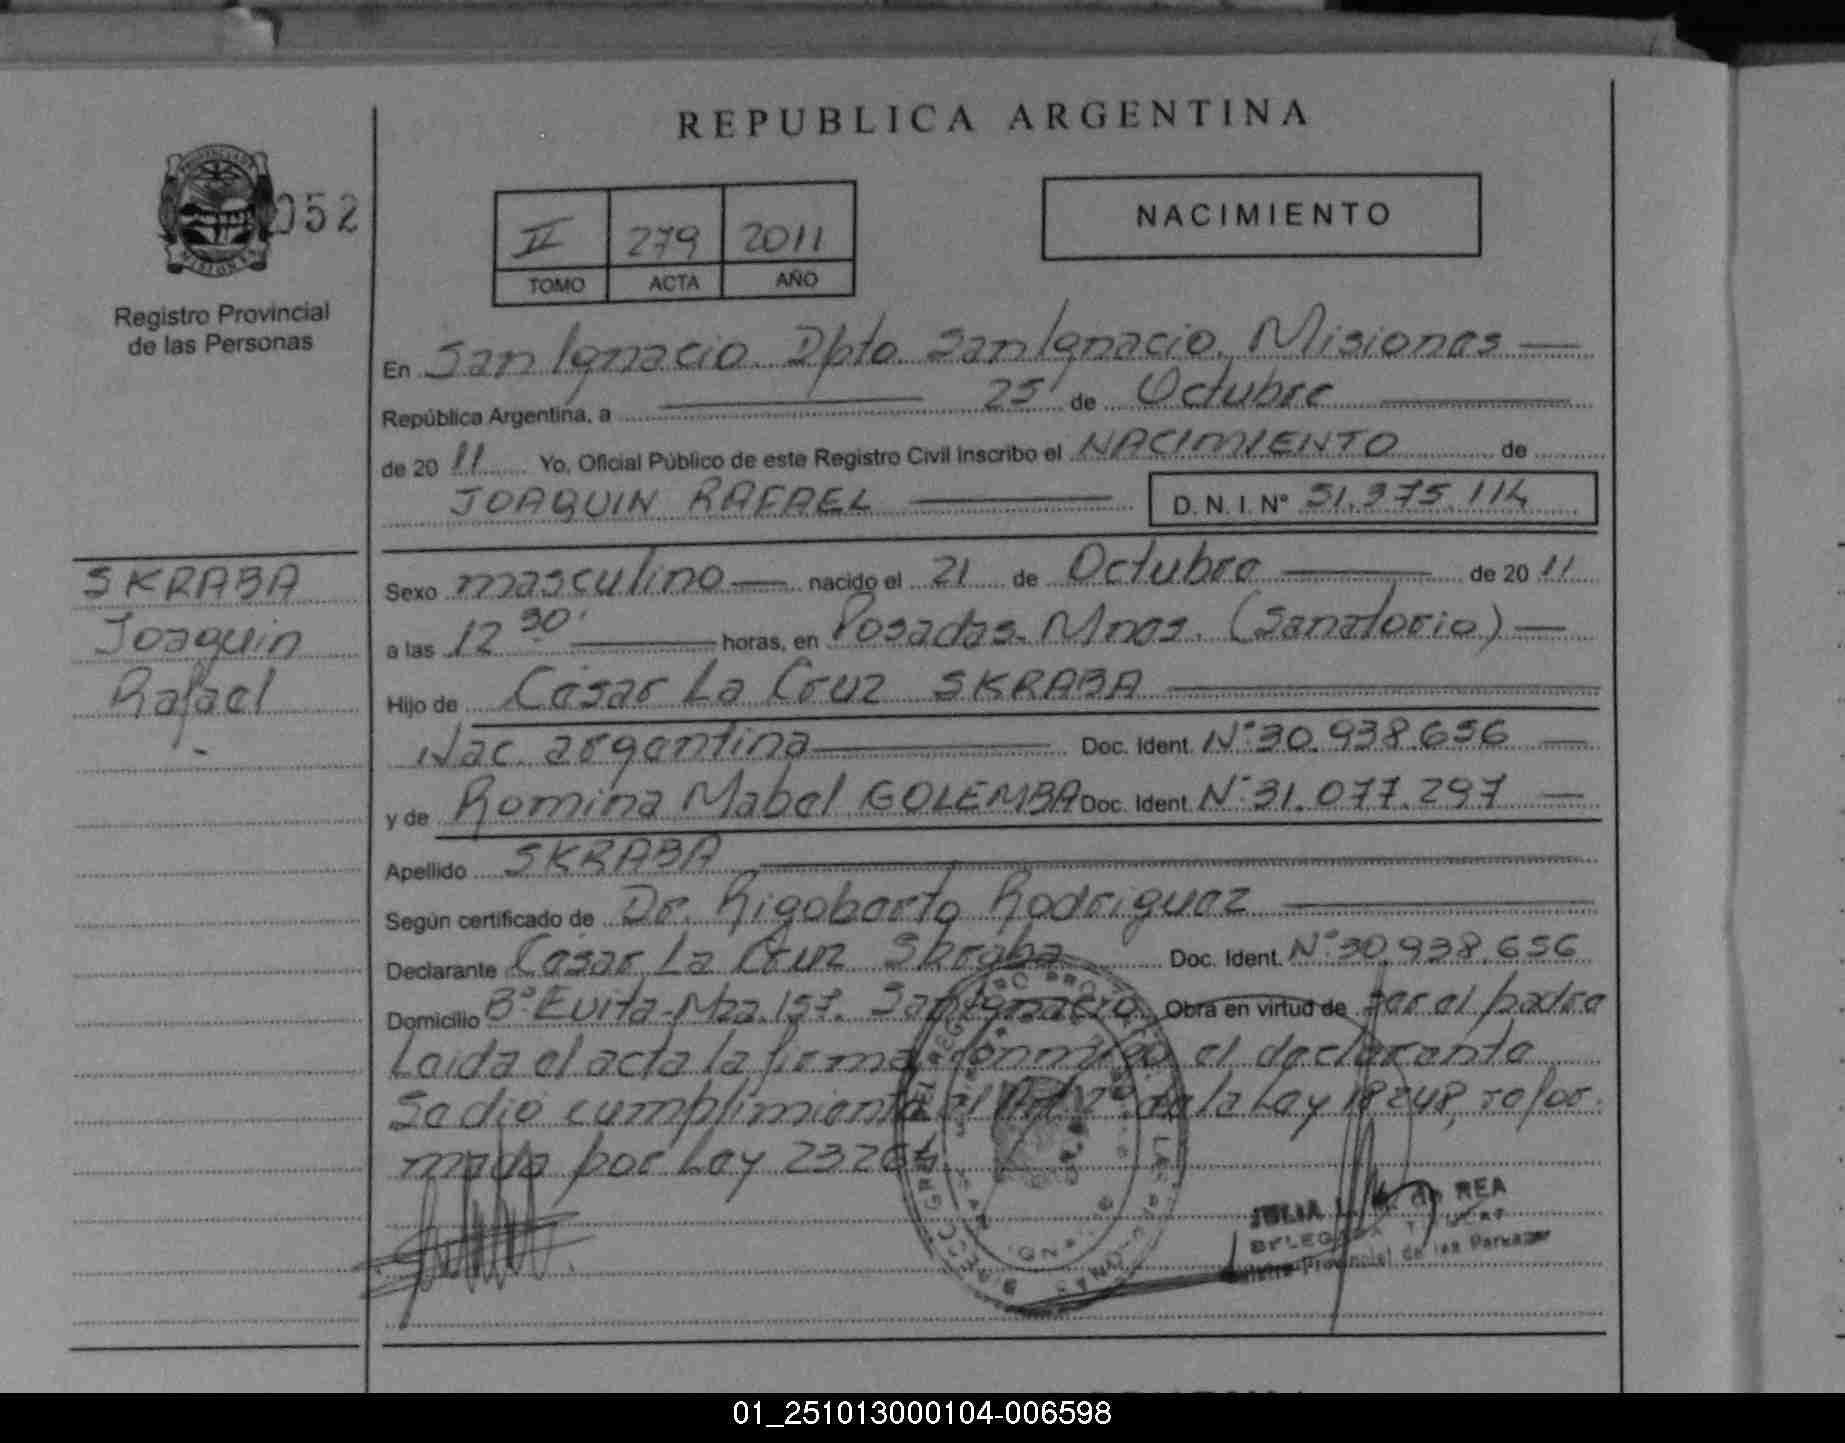 REPUBLICA ARGENTINA
PROVINCIA DE
MISIONES
052
Registro Provincial
de las Personas
II 279 2011
TOMO ACTA AÑO
NACIMIENTO
En San Ignacio. Dpto San Ignacio, Misiones
República Argentina, a 25 de Octubre
de 20 11 Yo, Oficial Público de este Registro Civil Inscribo el NACIMIENTO de
JOAQUIN RAFAEL D. N. I. Nº 51.375.114
SKRABA
Joaquin
Rafael
Sexo masculino nacido el 21 de Octubre de 20 11
a las 12 30' horas, en Posadas. Mnes. (Sanatorio)
Hijo de Cesar La Cruz SKRABA
Nac. argentina Doc. Ident. Nº 30.938.656
y de Romina Mabel GOLEMBA Doc. Ident. Nº 31.077.297
Apellido SKRABA
Según certificado de Dr. Rigoberto Rodriguez
Declarante Cesar La Cruz Skraba Doc. Ident. Nº 30.938.656
Domicilio Bº Evita-Mza.157. San Ignacio. Obra en virtud de ser el padre
Leida el acta la firma conmigo el declarante
Se dió cumplimiento al Art. 2º de la Ley 18248, refor-
mada por Ley 23264
JULIA de REA
DELEGADA TITULAR
Registro Provincial de las Personas
01_251013000104-006598